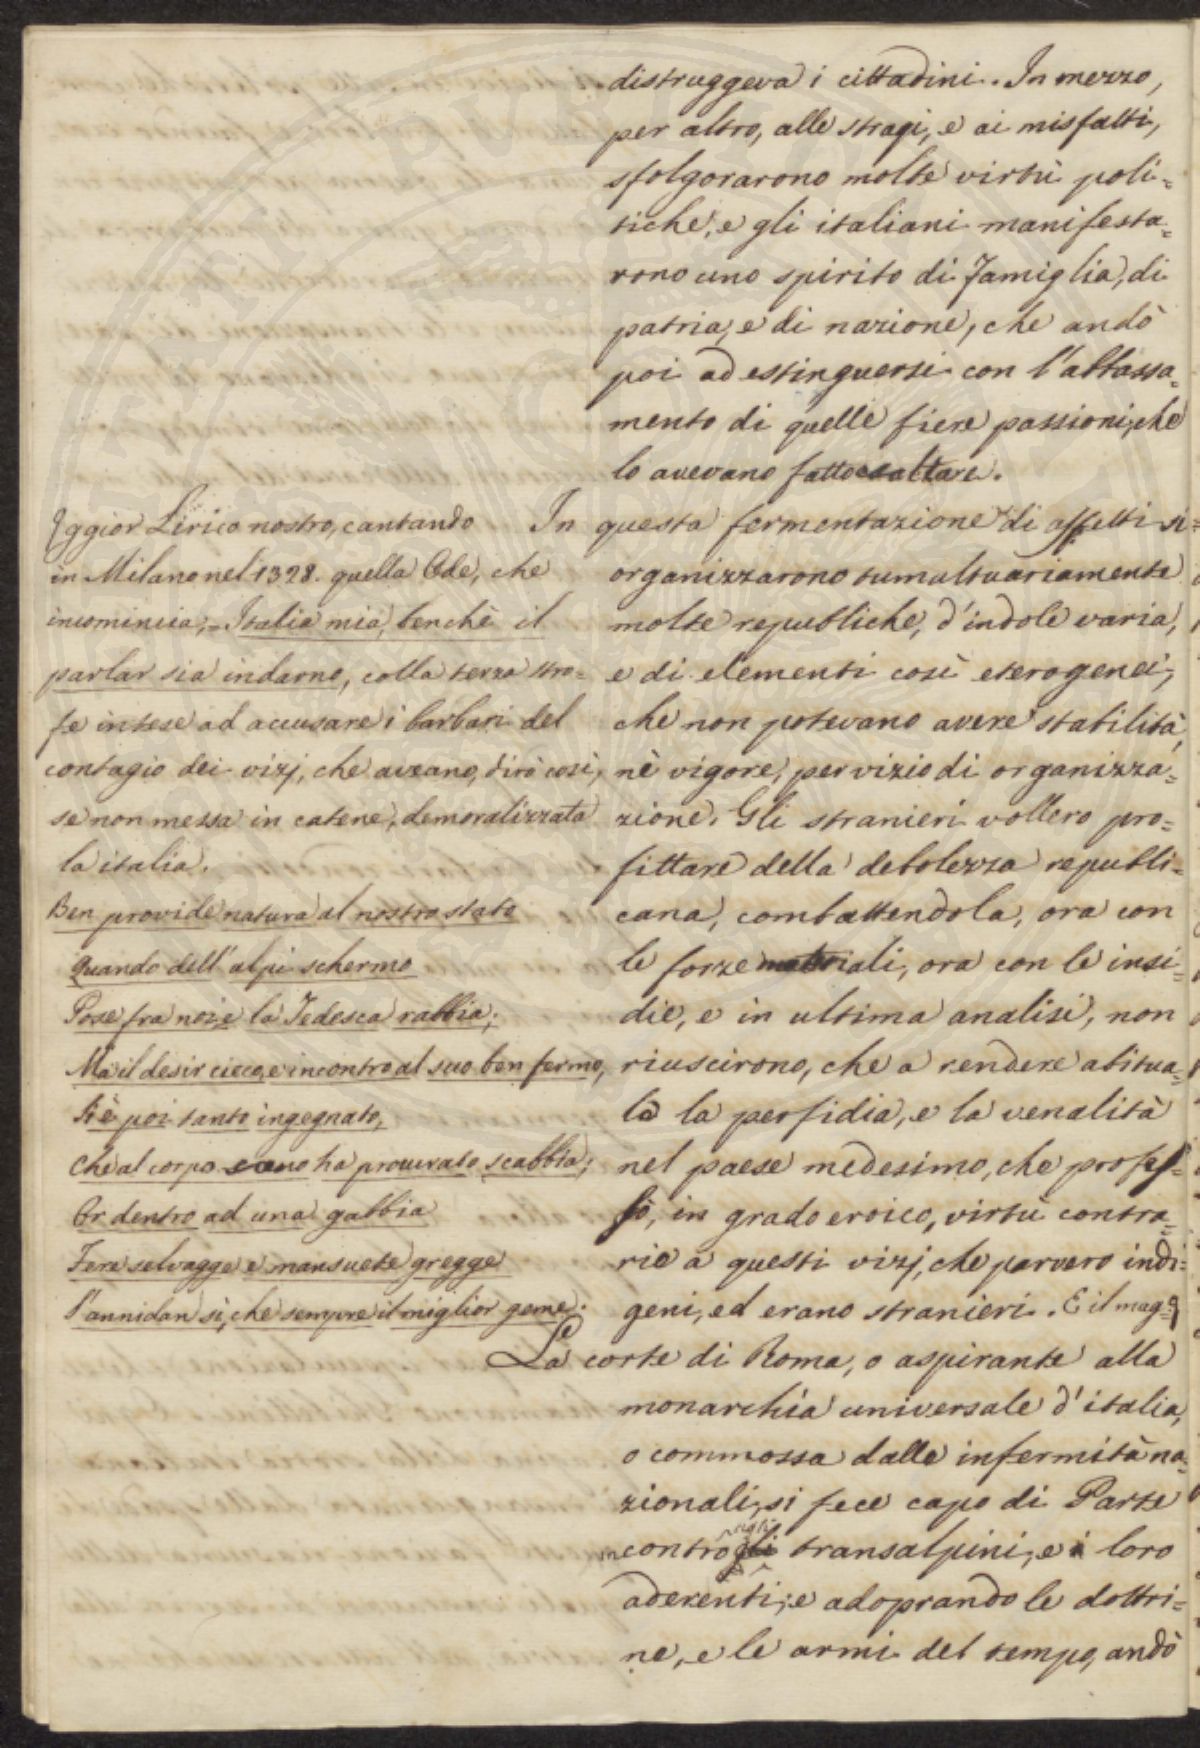 distruggeva i cittadini. In mezzo,
per altro, alle stragi, e ai misfatti,
sfolgorarono molte virtù poli=
tiche, e gli italiani manifesta=
rono uno spirito di famiglia, di
patria, e di nazione, che andò
poi ad estinguersi con l'abbassa=
mento di quelle fiere passioni, che
lo avevano fatto esaltare.
In questa fermentazione di affetti si
organizzarono tumultuariamente
molte republiche, d'indole varia,
e di elementi così eterogenei,
che non potevano avere stabilità,
nè vigore, per vizio di organizza=
zione. Gli stranieri vollero pro=
fittare della debolezza republi=
cana, combattendola, ora con
le forze materiali, ora con le insi=
die, e in ultima analisi, non
riuscirono, che a rendere abitua=
le la perfidia, e la venalità
nel paese medesimo, che profes=
sò, in grado eroico, virtù contra=
rie a questi vizj, che parvero indi=
geni, ed erano stranieri. E il mag=
ggior Lirico nostro, cantando
in Milano nel 1328. quella Ode, che
incomincia; = Italia mia, benchè il
parlar sia indarno, colla terza stro=
fe intese ad accusare i barbari del
contagio dei vizj, che aveano, dirò così,
se non messa in catene, demoralizzata
la italia.
Ben provide natura al nostro stato
Quando dell'alpi schermo
Pose fra noi e la Tedesca rabbia;
Ma il desir cieco, e incontro al suo ben fermo,
S'è poi tanto ingegnato,
Che al corpo sano ha procurato scabbia;
Or dentro ad una gabbia
Fere selvagge e mansuete gregge
S'annidan sì, che sempre il miglior geme.
La corte di Roma, o aspirante alla
monarchia universale d'italia,
o commossa dalle infermità na=
zionali, si fece capo di Parte
incontro gli transalpini, e i loro
aderenti; e adoprando le dottri=
ne, e le armi del tempo, andò